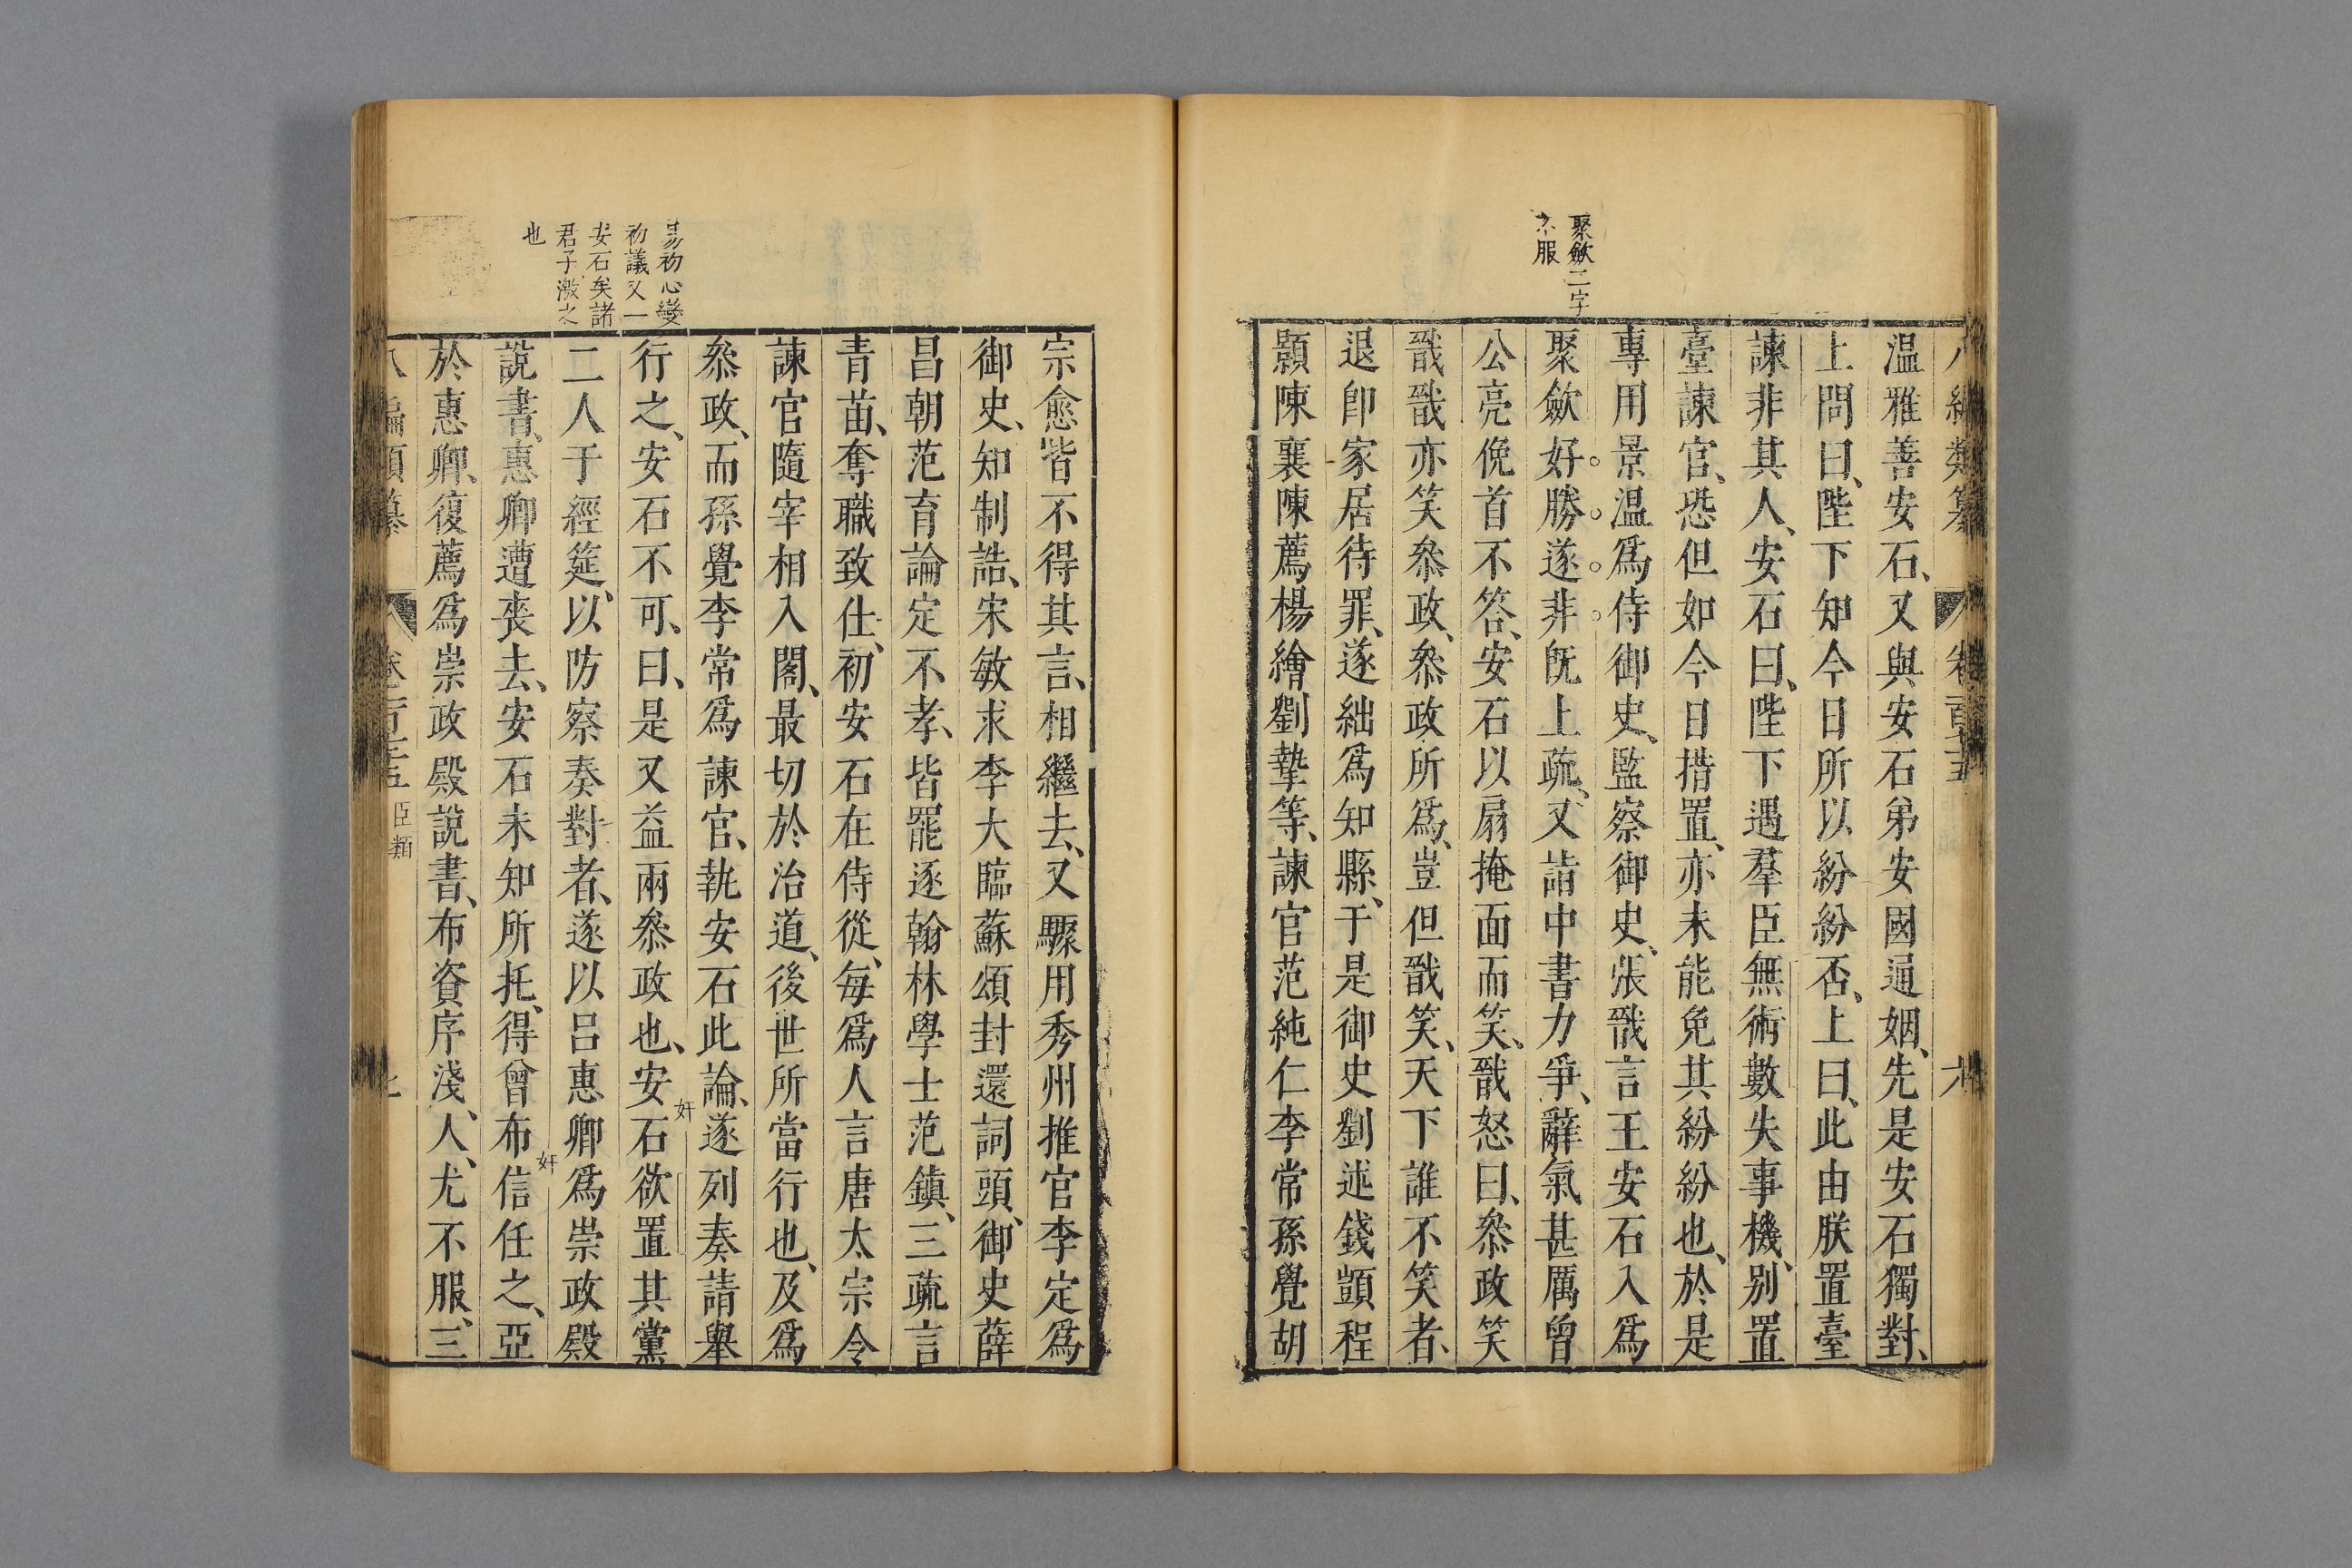 聚斂二字
不服
溫雅善安石、又與安石弟安國通姻、先是安石獨對、
上問曰、陛下知今日所以紛紛否、上曰、此由朕置臺
諫非其人、安石曰、陛下遇羣臣無術數失事機、别置
臺諫官、恐但如今日措置、亦未能免其紛紛也、於是
專用景温爲侍御史、監察御史、張戩言王安石入爲
聚斂好勝遂非旣上疏、又詣中書力爭、辭氣甚厲曾
公亮俛首不答、安石以扇掩面而笑、戩怒曰、叅政笑
戩戩亦笑叅政、叅政所爲、豈但戩笑、天下誰不笑者、
退卽家居待罪、遂絀爲知縣、于是御史劉述錢顗程
顥陳襄陳薦楊繪劉摯等、諫官范純仁李常孫覺胡
宗愈皆不得其言、相繼去、又驟用秀州推官李定爲
御史、知制誥、宋敏求李大臨蘇頌封還詞頭、御史薛
昌朝范育論定不孝、皆罷逐翰林學士范鎮、三疏言
青苗、奪職致仕、初安石在侍從、每爲人言唐太宗令
諫官隨宰相入閣、最切於治道、後世所當行也、及爲
叅政、而孫覺李常爲諫官、執安石此論、遂列奏請舉
行之、安石不可、曰、是又益兩叅政也、安石欲置其黨
二人于經筵、以防察奏對者、遂以呂惠卿爲崇政殿
說書、惠卿遭喪去、安石未知所托、得曾布信任之、亞
於惠卿、復薦爲崇政殿說書、布資序淺、人、尤不服、三
易初心變
初議又一
安石矣諸
君子激之
也
奸
奸
臣類